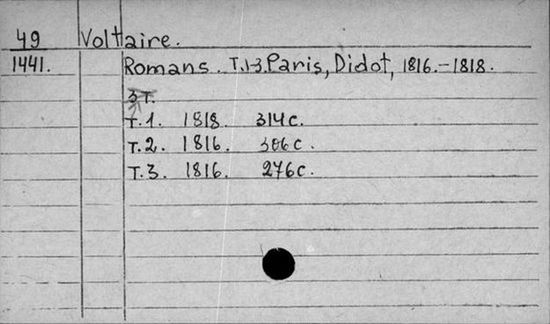 49 Voltaire.
1441. Romans. T.1-3. Paris, Didot, 1816.-1818.
3 T.
T.1. 1818. 314c.
T.2. 1816. 306c.
T.3. 1816. 276c.